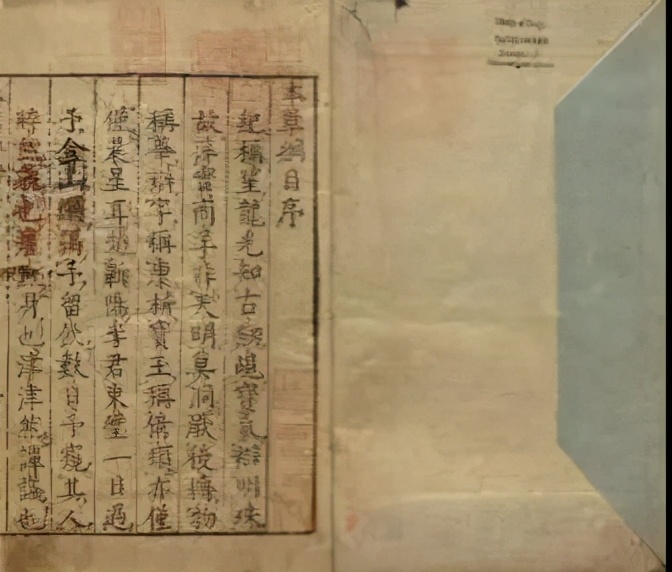 本草綱目序
紀稱望龍光知古劍覘寶氣辨明珠
故萍實商羊非天明莫洞厥後博物
稱華辨字稱康析寶玉稱倚頓亦僅
僅晨星耳楚蘄陽李君東璧一日過
予弇山園謁予留飲數日予窺其人
睟然貌也癯然身也津津然譚議也